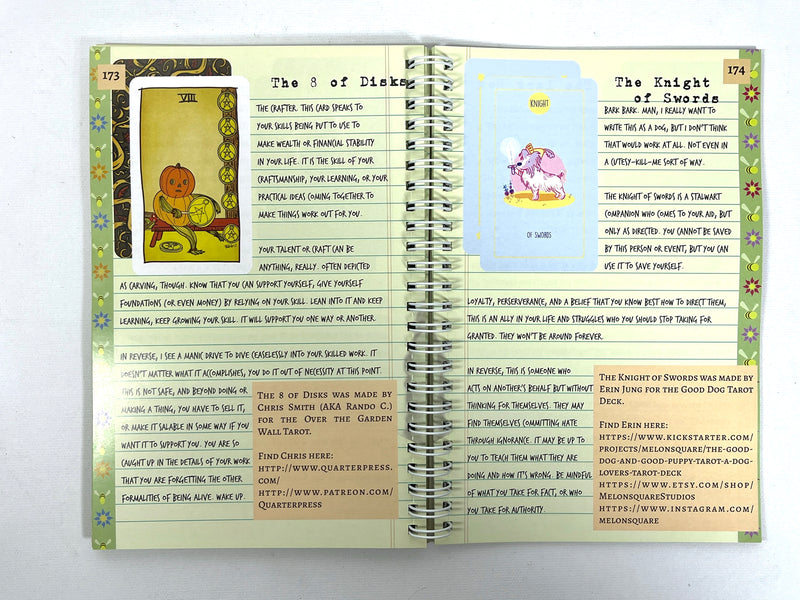 173
The 8 of Disks
VIII
THE CRAFTER. THIS CARD SPEAKS TO
YOUR SKILLS BEING PUT TO USE TO
MAKE WEALTH OR FINANCIAL STABILITY
IN YOUR LIFE. IT IS THE SKILL OF YOUR
CRAFTSMANSHIP, YOUR LEARNING, OR YOUR
PRACTICAL IDEAS COMING TOGETHER TO
MAKE THINGS WORK OUT FOR YOU.
YOUR TALENT OR CRAFT CAN BE
ANYTHING, REALLY. OFTEN DEPICTED
AS CARVING, THOUGH. KNOW THAT YOU CAN SUPPORT YOURSELF, GIVE YOURSELF
FOUNDATIONS (OR EVEN MONEY) BY RELYING ON YOUR SKILL. LEAN INTO IT AND KEEP
LEARNING, KEEP GROWING YOUR SKILL. IT WILL SUPPORT YOU ONE WAY OR ANOTHER.
IN REVERSE, I SEE A MANIC DRIVE TO DIVE CEASELESSLY INTO YOUR SKILLED WORK. IT
DOESN'T MATTER WHAT IT ACCOMPLISHES, YOU DO IT OUT OF NECESSITY AT THIS POINT.
THIS IS NOT SAFE, AND BEYOND DOING OR
MAKING A THING, YOU HAVE TO SELL IT,
OR MAKE IT SALABLE IN SOME WAY IF YOU
WANT IT TO SUPPORT YOU. YOU ARE SO
CAUGHT UP IN THE DETAILS OF YOUR WORK
THAT YOU ARE FORGETTING THE OTHER
FORMALITIES OF BEING ALIVE. WAKE UP.
The 8 of Disks was made by
Chris Smith (AKA Rando C.)
for the Over the Garden
Wall Tarot.
Find Chris here:
http://www.quarterpress.
com/
http://www.patreon.com/
Quarterpress
174
The Knight
of Swords
KNIGHT
OF SWORDS
BARK BARK. MAN, I REALLY WANT TO
WRITE THIS AS A DOG, BUT I DON'T THINK
THAT WOULD WORK AT ALL. NOT EVEN IN
A CUTESY-KILL-ME SORT OF WAY.
THE KNIGHT OF SWORDS IS A STALWART
COMPANION WHO COMES TO YOUR AID, BUT
ONLY AS DIRECTED. YOU CANNOT BE SAVED
BY THIS PERSON OR EVENT, BUT YOU CAN
USE IT TO SAVE YOURSELF.
LOYALTY, PERSERVERANCE, AND A BELIEF THAT YOU KNOW BEST HOW TO DIRECT THEM,
THIS IS AN ALLY IN YOUR LIFE AND STRUGGLES WHO YOU SHOULD STOP TAKING FOR
GRANTED. THEY WON'T BE AROUND FOREVER.
IN REVERSE, THIS IS SOMEONE WHO
ACTS ON ANOTHER'S BEHALF BUT WITHOUT
THINKING FOR THEMSELVES. THEY MAY
FIND THEMSELVES COMMITTING HATE
THROUGH IGNORANCE. IT MAY BE UP TO
YOU TO TEACH THEM WHAT THEY ARE
DOING AND HOW IT'S WRONG. BE MINDFUL
OF WHAT YOU TAKE FOR FACT, OR WHO
YOU TAKE FOR AUTHORITY.
The Knight of Swords was made by
Erin Jung for the Good Dog Tarot
Deck.
Find Erin here:
https://www.kickstarter.com/
projects/melonsquare/the-good-
dog-and-good-puppy-tarot-a-dog-
lovers-tarot-deck
https://www.etsy.com/shop/
MelonsquareStudios
https://www.instagram.com/
melonsquare